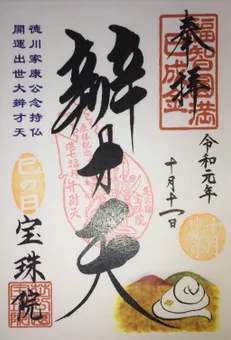 奉拝
福智円満
巳成金
令和元年
十月十一日
辨才天
徳川家康公念持仏
開運出世大辨才天
巳の日
宝珠院